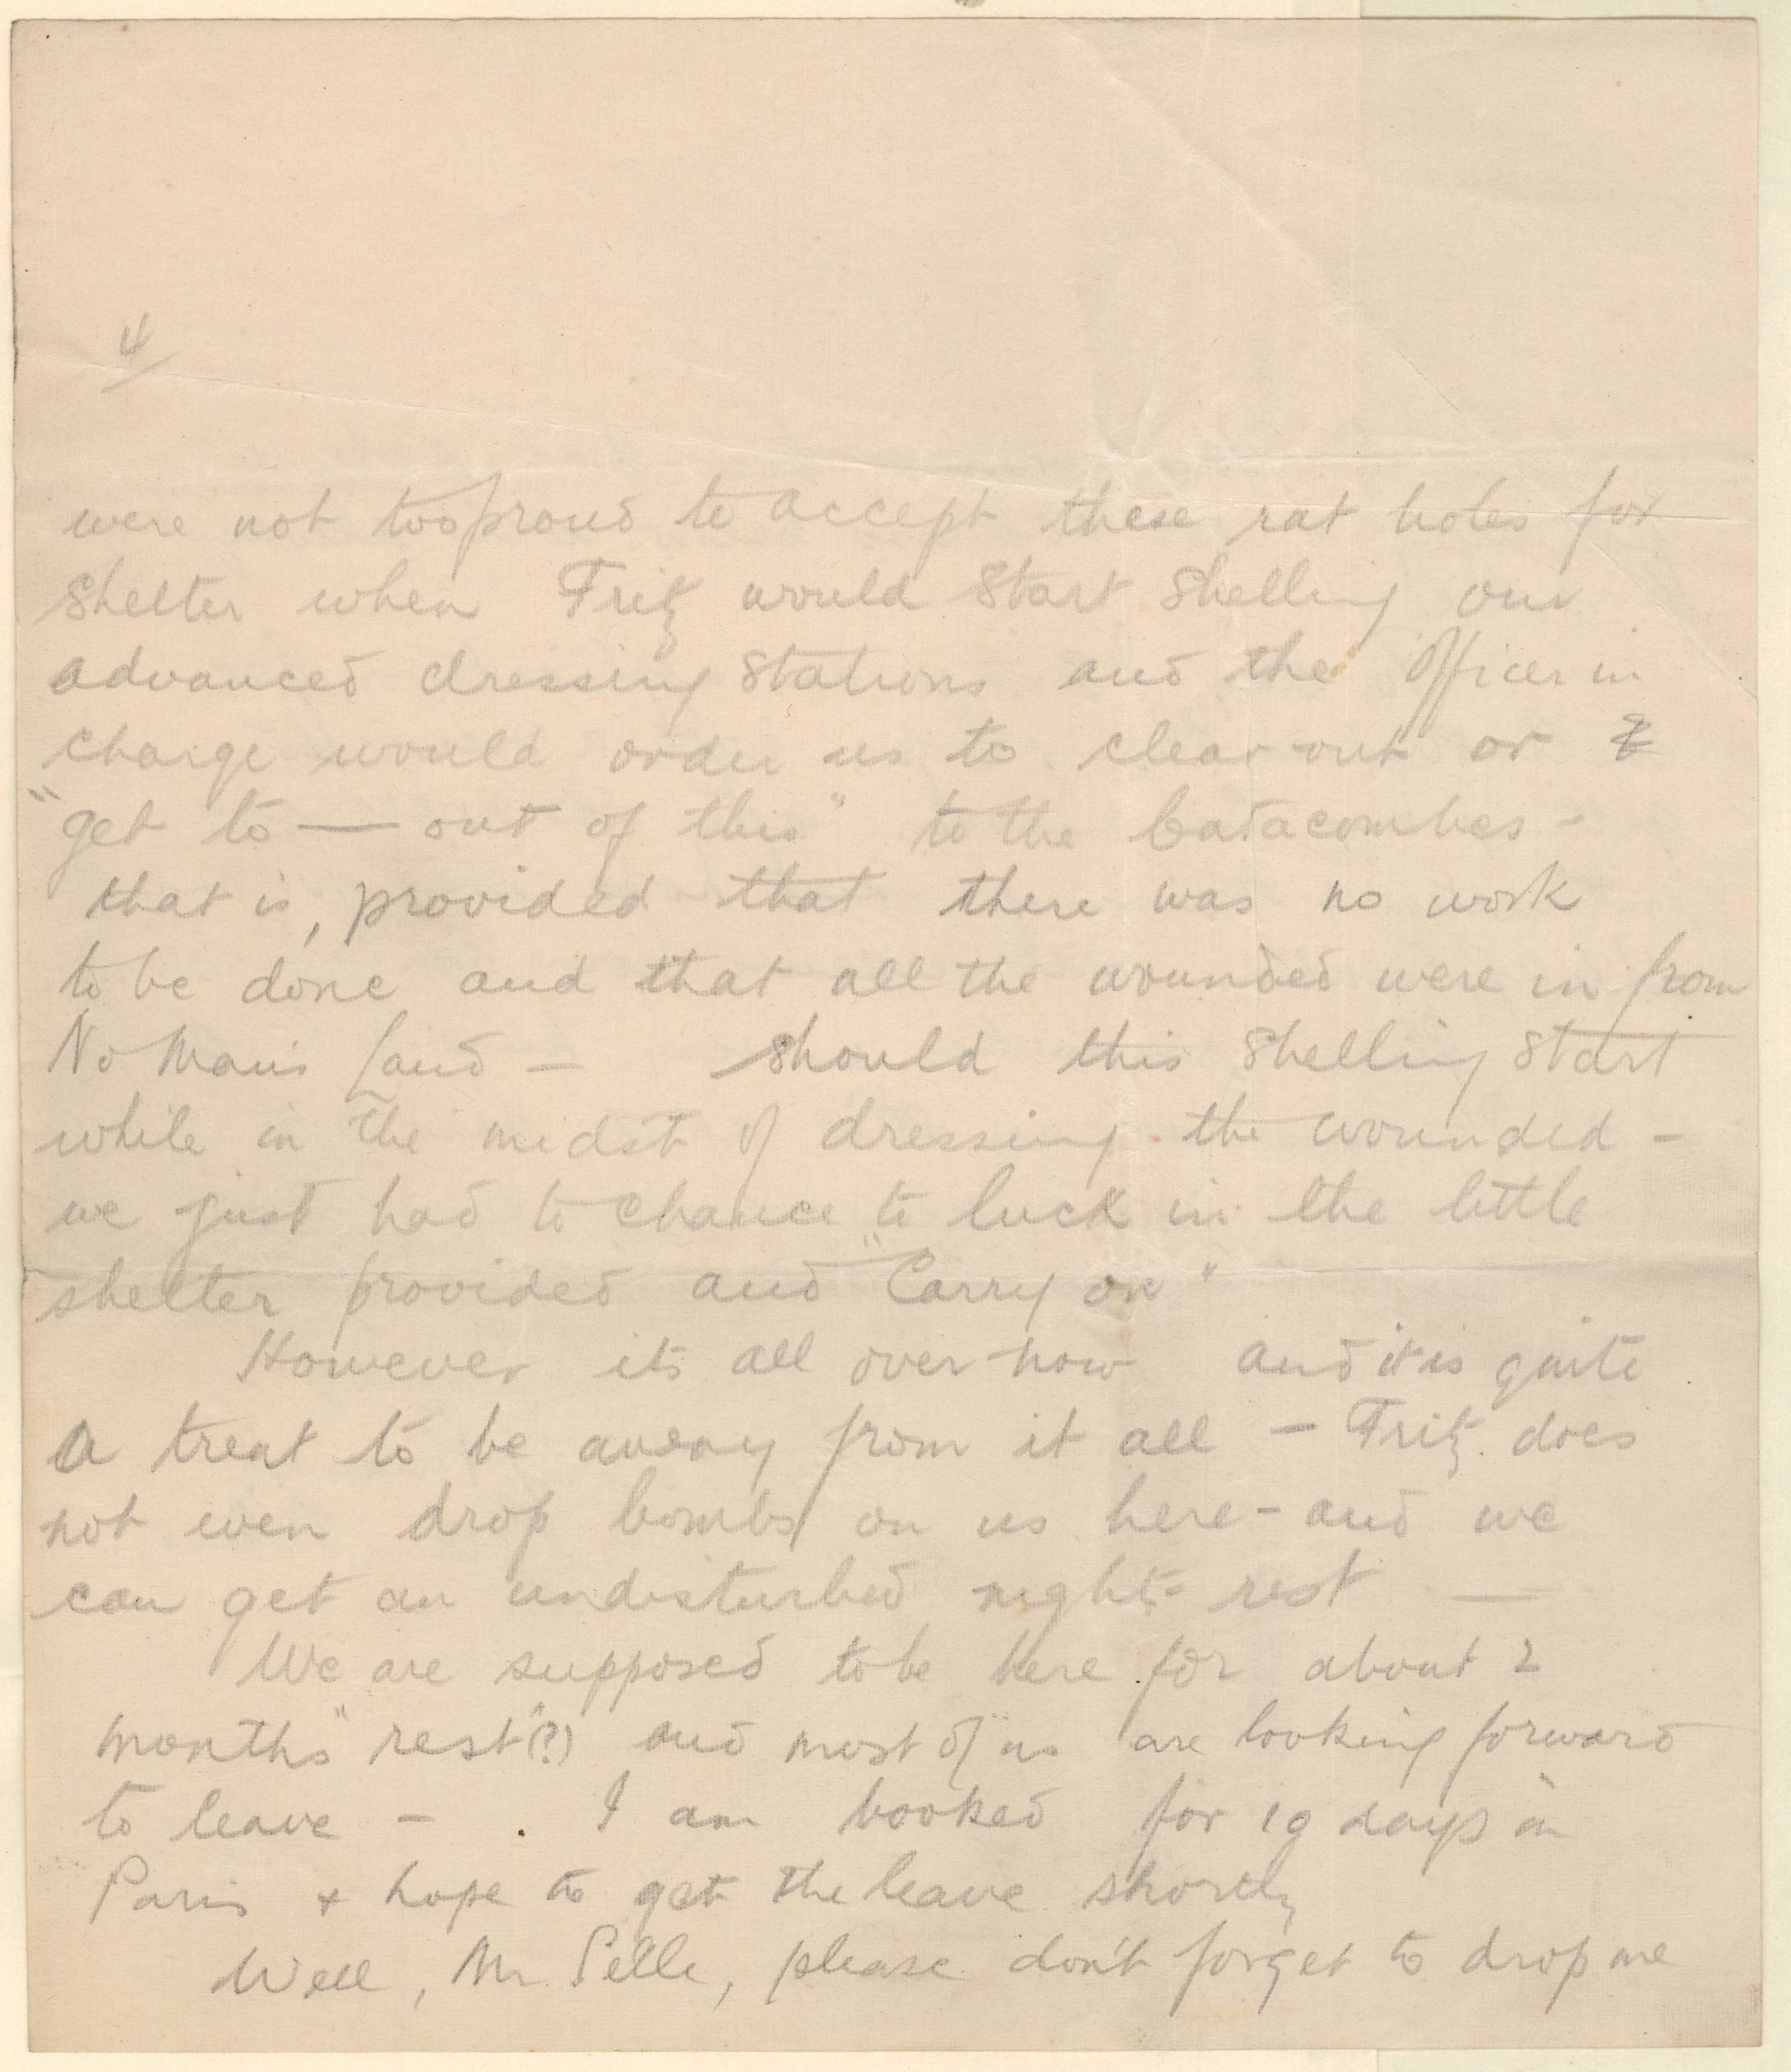 4/
were not too proud to accept these rat holes for
shelter when Fritz would start shelling our
advanced dressing stations and the Officer in
charge would order us to clear out or
"get to — out of this" to the Catacombes -
that is, provided that there was no work
to be done and that all the wounded were in from
No Man's Land - should this shelling start
while in the midst of dressing the wounded -
we just had to chance to luck in the little
shelter provided and "Carry on"
However its all over now and it is quite
a treat to be away from it all - Fritz does
not even drop bombs on us here - and we
can get an undisturbed nights rest —
We are supposed to be here for about 2
months "rest"(?) and most of us are looking forward
to leave - I am booked for 10 days in
Paris + hope to get the leave shortly
Well, Mr. Selle, please don't forget to drop me